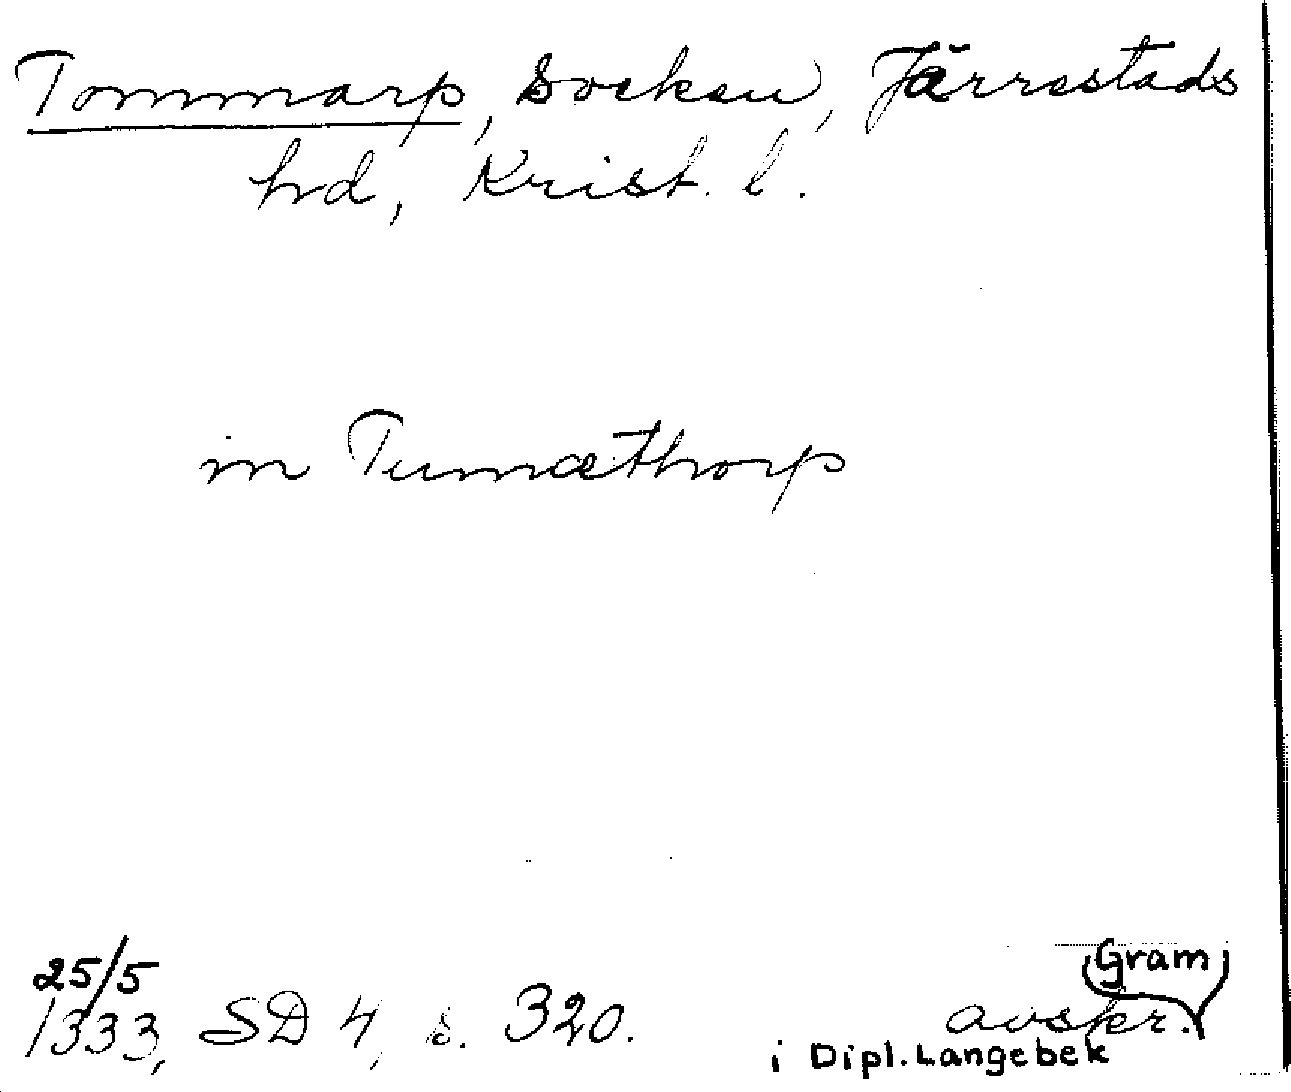 Tommarp, Socken, Järrestads
hd, Krist. l.
in Tumæthorp
25/5
1333, SD 4, s. 320.
Gram
avskr.
i Dipl. Langebek